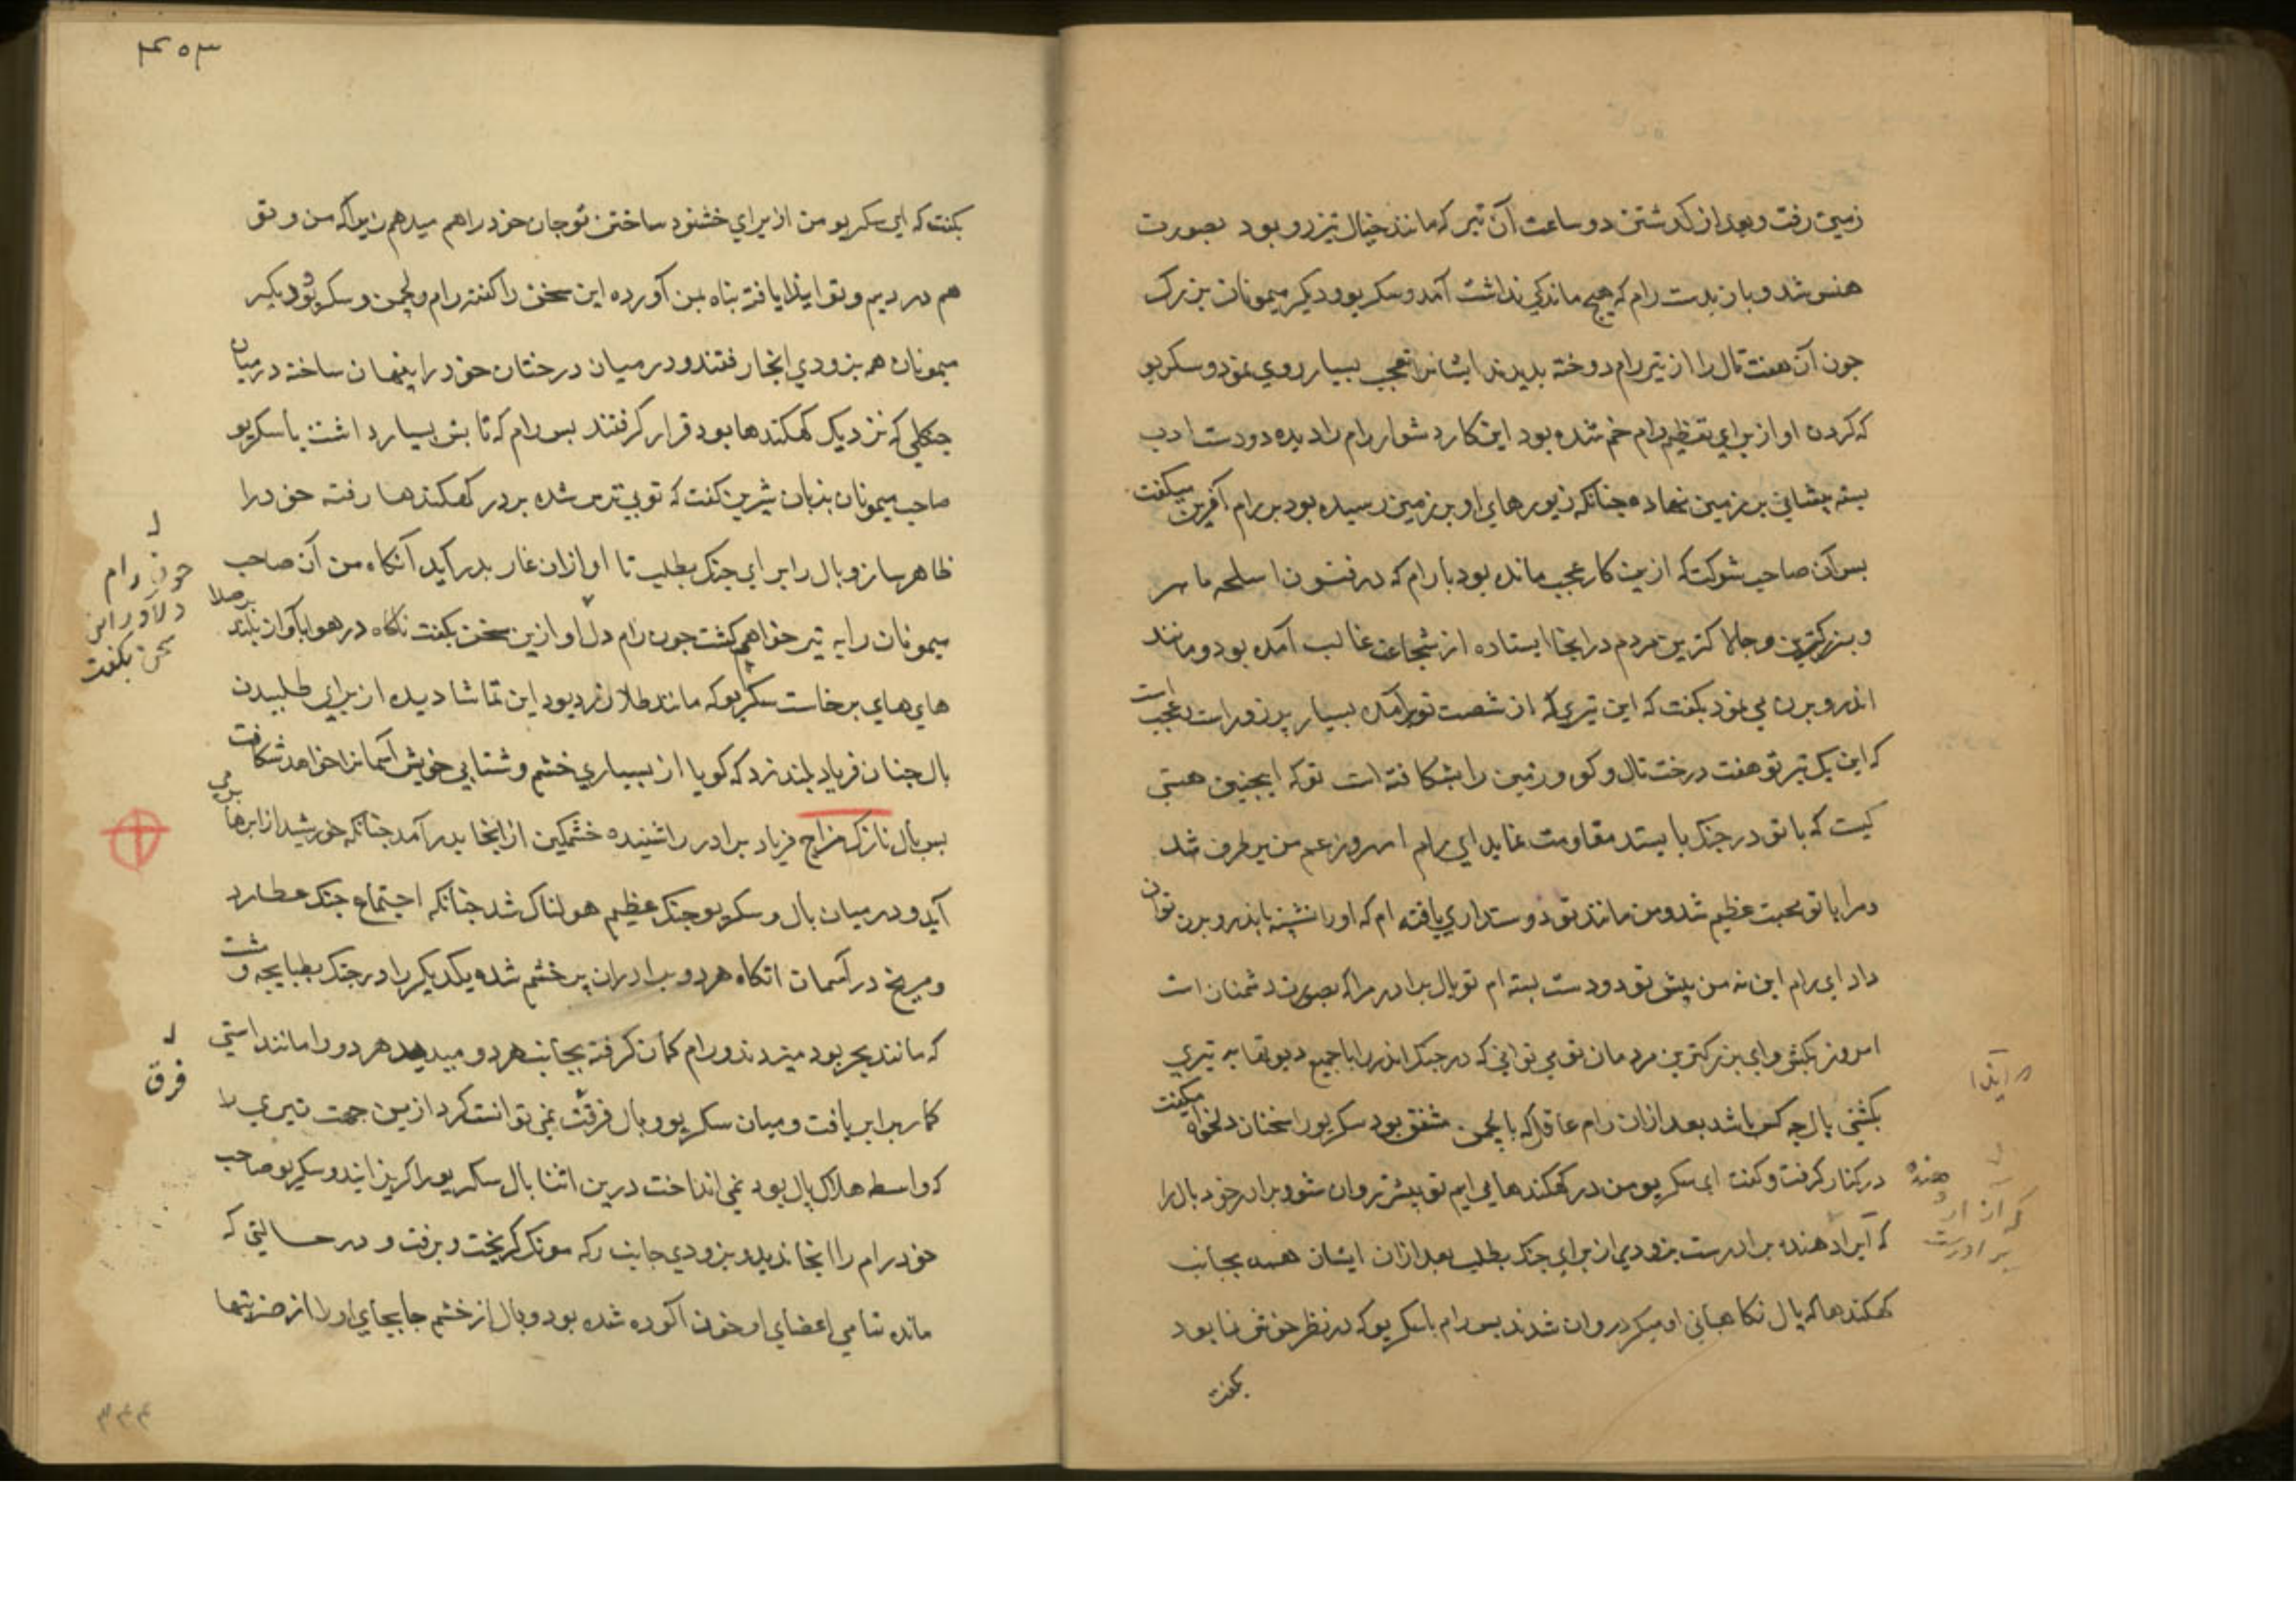 زمین رفت و بعد از کدشتن دو ساعت آن تیر که مانند خیال تیزرو بود بصورت
هنس شد و باز بدست رام که هیچ ماندکی نداشت آمد و سکریو و دیکر میمونان بزرک
چون آن هفت تال را از تیر رام دوخته بدیدند ایشانرا تعجب بسیار روی نمود و سکریو
که کردن او از برای تعظیم رام خم شده بود این کار دشوار رام را دیده دو دست ادب
بسته پیشانی بر زمین نهاده چنانکه زیورهای او بر زمین رسیده بود بر رام آفرین میکفت
پس آن صاحب شوکت که ازین کار عجب مانده بود با رام که در فنون اسلحه ماهر
و بزرکترین و چالاکترین مردم در اینجا ایستاده از شجاعت غالب آمده بود و مانند
اندر و برن می نمود بکفت که این تیری که از شصت تو برآمده بسیار پرزور است و عجب است
که این یک تیر تو هفت درخت تال و کوه و زمین را بشکافته است تو که اینچنین هستی
کیست که با تو در جنک بایستد مقاومت نماید ای رام امروز غم من برطرف شد
و مرا با تو محبت عظیم شد و من مانند تو دوستداری یافته ام که او را نسبت باندر و برن توان
داد ای رام اینه من پیش تو دو دست بسته ام تو بال برادر مرا که بصورت دشمنان است
امروز بکش و ای بزرکترین مردمان تو می توانی که در جنک اندر را با جمیع دیوتها به تیری
بکشی بال چه کس باشد بعد ازان رام عاقل که با لچمن متفق بود سکریو را سخنان دلخواه میکفت
در کنار کرفت و کفت ای سکریو من در کهکندها می ایم تو پیشتر روان شو و برادر خود بال را
که آیراد هنده برادرست بزودی از برای جنک بطلب بعد ازان ایشان همه بجانب
کهکندها که بال نکاهبانی او میکرد روان شدند پس رام با سکریو که در نظر خوش نما بود
بکفت
ایذا
هنده
که از او
برادرست
۳۵۳
بکفت که ای سکریو من از برای خشنود ساختن تو جان خود را هم میدهم زیراکه من و تو
هم دردیم و تو ایذا یافته پناه بمن آورده این سخن را کفته رام و لچمن و سکریو و دیکر
میمونان هم بزودی انجا رفتند و در میان درختان خود را پنهان ساخته در میان
جنکلی که نزدیک کهکندها بود قرار کرفتند پس رام که تابش بسیار داشت با سکریو
صاحب میمونان بزبان شیرین کفت که تو بی ترس شده بر در کهکندها رفته خود را
ظاهر ساز و بال را برای جنک بطلب تا او ازان غار بدر آید آنکاه من آن صاحب
میمونان را به تیر خواهم کشت چون رام دلاور این سخن بکفت ناکاه در هوا بآواز بلند برملا
های های برخاست سکریو که مانند طلا زرد بود این تماشا دیده از برای طلبیدن
بال چنان فریاد بلند زد که کویا از بسیاری خشم و شتابی خویش آسمانرا خواهد شکافت
پس بال نازک مزاج فریاد برادر را شنیده خشمکین از انجا بدر آمد چنانکه خورشید از ابرها برمی
آید و در میان بال و سکریو جنک عظیم هولناک شد چنانکه اجتماع جنک عطارد
و مریخ در آسمان انکاه هر دو برادران پر خشم شده یکدیکر را در جنک بطبانچه و مشت
که مانند بجر بود میزدند و رام کمان کرفته بجانب هر دو میدید هر دو را مانند استی
کمار برابر یافت و میان سکریو و بال فرقت نمی توانست کرد ازین جهت تیری را
که واسطه هلاک بال بود نمی انداخت درین اثنا بال سکریو را کریزانید و سکریو صاحب
خود رام را انجا ندید و بزودی جانب رکه مونک کریخت و برفت و در حالتی که
مانده تمامی اعضای او خون آلوده شده بود و بال از خشم جابجای او را از ضربتها
چون رام
دلاور این
سخن بکفت
فرق
۳۴۴